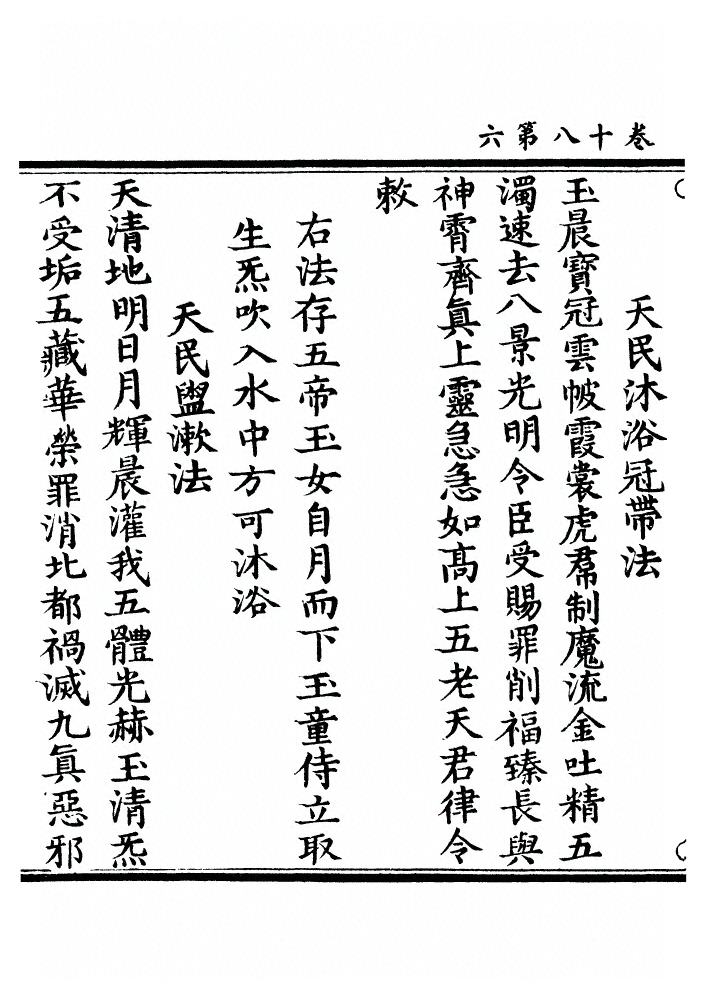 六第八十卷
天民沐浴冠帶法
玉晨寶冠雲帔霞裳虎帬制魔流金吐精五
濁速去八景光明令臣受賜罪削福臻長與
神霄齊眞上靈急急如高上五老天君律令
敕
右法存五帝玉女自月而下玉童侍立取
生炁吹入水中方可沐浴
天民盥漱法
天清地明日月輝晨灌我五體光赫玉清炁
不受垢五藏華榮罪消北都禍滅九眞惡邪